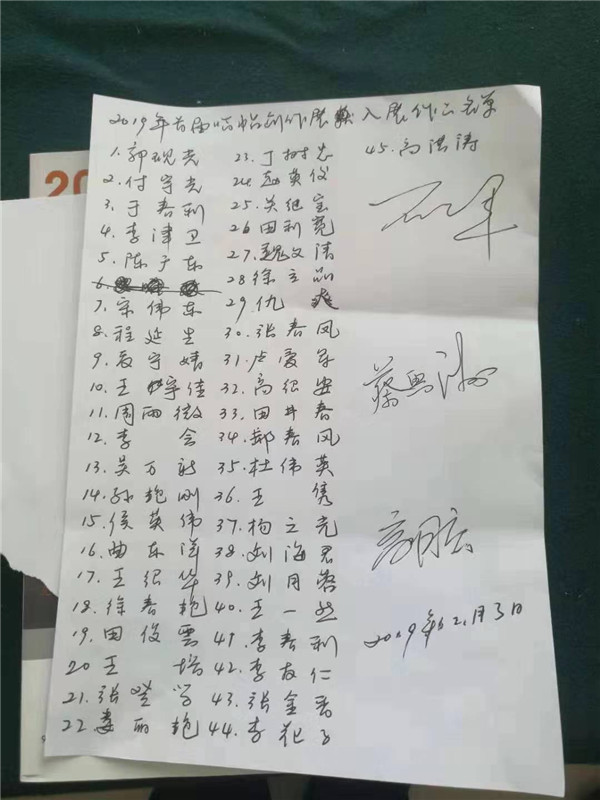 2019年首届临帖创作展入展作品名单
1.郭砚光
2.付守光
3.于春利
4.李津卫
5.陈广东
6.
7.宋伟东
8.程延生
9.守婧
10.王宇佳
11.周丽微
12.李会
13.吴万新
14.孙艳刚
15.侯英伟
16.曲东洋
17.王绍华
18.徐春艳
19.田俊云
20 王培
21.张登学
22.娄丽艳
23.丁树志
24.赵英仪
25.关继宝
26.田利宽
27.魏文清
28.徐立品
29.仇爽
30.张春凤
31.卢爱军
32.高绍安
33.田井春
34.郝春风
35.杜伟英
36.王隽
37.杨立光
38.刘海君
39.刘月蓉
40.王一
41.李春利
42.李友仁
43.张金香
44.李犯子
45.高洪涛
石军
蔡兴洲
2019年12月3日
20